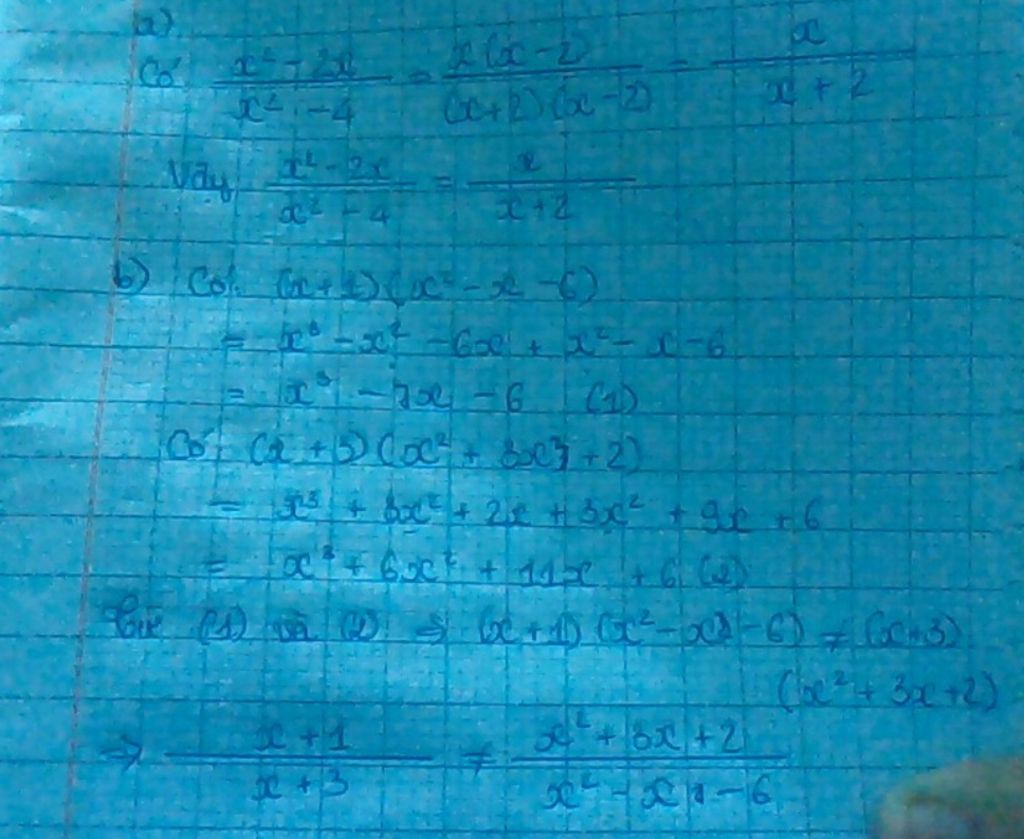 a)
Có x² - 2x / x² - 4 = x(x - 2) / (x+2)(x-2) = x / x + 2
Vậy x² - 2x / x² - 4 = x / x + 2
b) Có: (x+1)(x² - x - 6)
= x³ - x² - 6x + x² - x - 6
= x³ - 7x - 6 (1)
Có: (x + 3)(x² + 3x + 2)
= x³ + 3x² + 2x + 3x² + 9x + 6
= x³ + 6x² + 11x + 6 (2)
Từ (1) và (2) ⇒ (x+1)(x² - x - 6) ≠ (x+3)
(x² + 3x + 2)
⇒ x + 1 / x + 3 ≠ x² + 3x + 2 / x² - x - 6